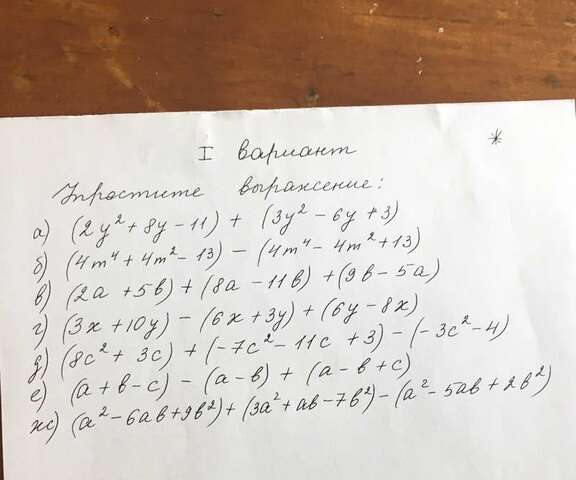 I вариант *
Упростите выражение:
а) (2y² + 8y - 11) + (3y² - 6y + 3)
б) (4m⁴ + 4m² - 13) - (4m⁴ - 4m² + 13)
в) (2a + 5b) + (8a - 11b) + (9b - 5a)
г) (3x + 10y) - (6x + 3y) + (6y - 8x)
д) (8c² + 3c) + (-7c² - 11c + 3) - (-3c² - 4)
е) (a + b - c) - (a - b) + (a - b + c)
ж) (a² - 6ab + 9b²) + (3a² + ab - 7b²) - (a² - 5ab + 2b²)